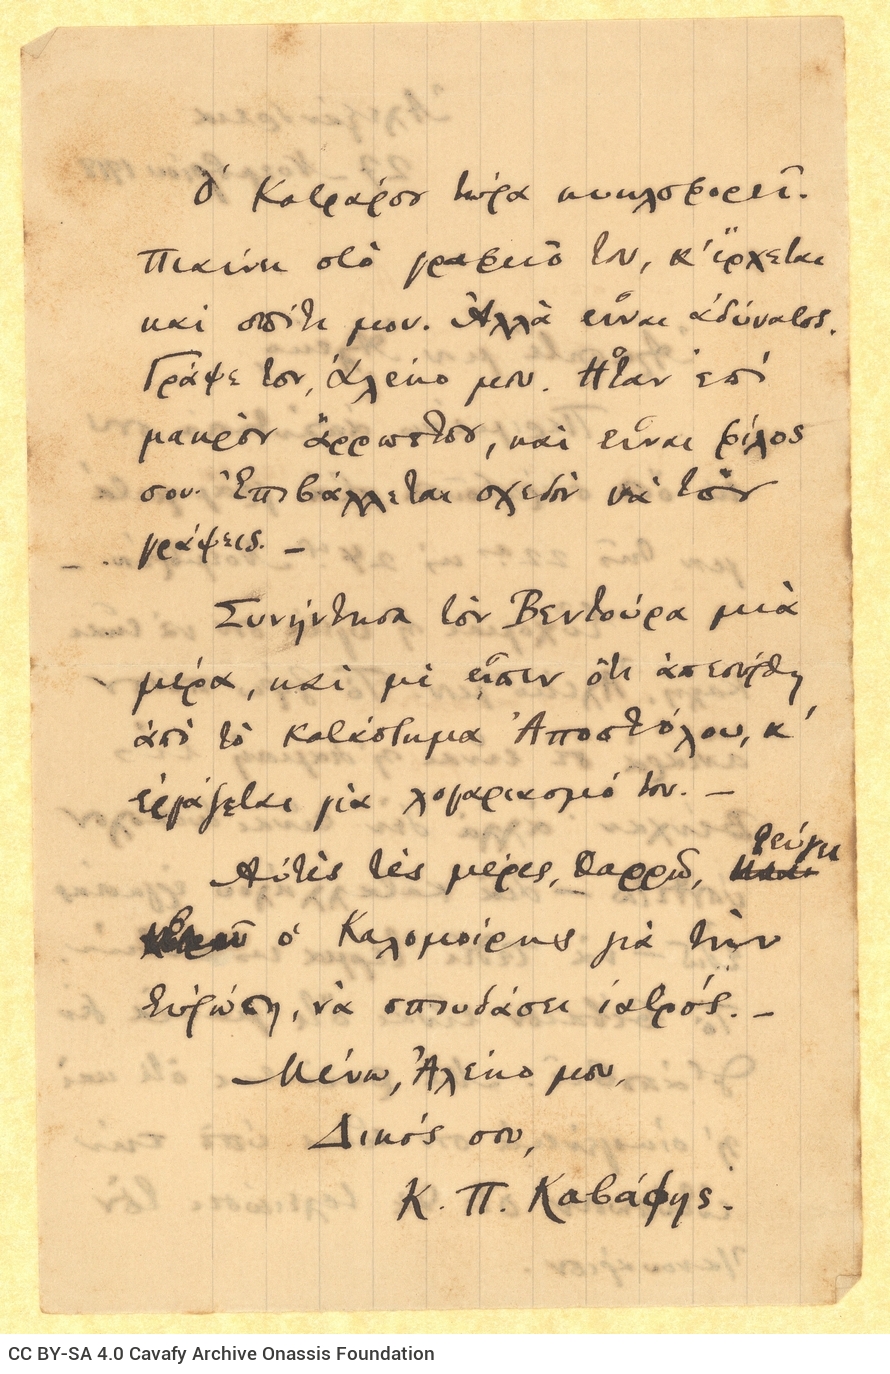 Ὁ Κατράρος τώρα κυκλοφορεῖ.
Πηαίνει στὸ γραφεῖο του, κ' ἔρχεται
καὶ σπίτι μου. Ἀλλὰ εἶναι ἀδύνατος.
Γράψε τον, Ἀλέκο μου. Ἦταν ἐπὶ
μακρὸν ἄρρωστος, καὶ εἶναι φίλος
σου. Ἐπιβάλλεται σχεδὸν νὰ τὸν
γράψεις. —
Συνήντησα τὸν Βεντούρα μιὰ
μέρα, καὶ μὲ εἶπεν ὅτι ἀπεσύρθη
ἀπὸ τὸ κατάστημα Ἀποστόλου, κ'
ἐργάζεται γιὰ λογαριασμό του. —
Αὐτὲς τὲς μέρες, θαρρῶ, φεύγει
ὁ Καλομοίρης γιὰ τὴν
Εὐρώπη, νὰ σπουδάσει ἰατρός. —
Μένω, Ἀλέκο μου,
Δικός σου,
Κ. Π. Καβάφης.
CC BY-SA 4.0 Cavafy Archive Onassis Foundation